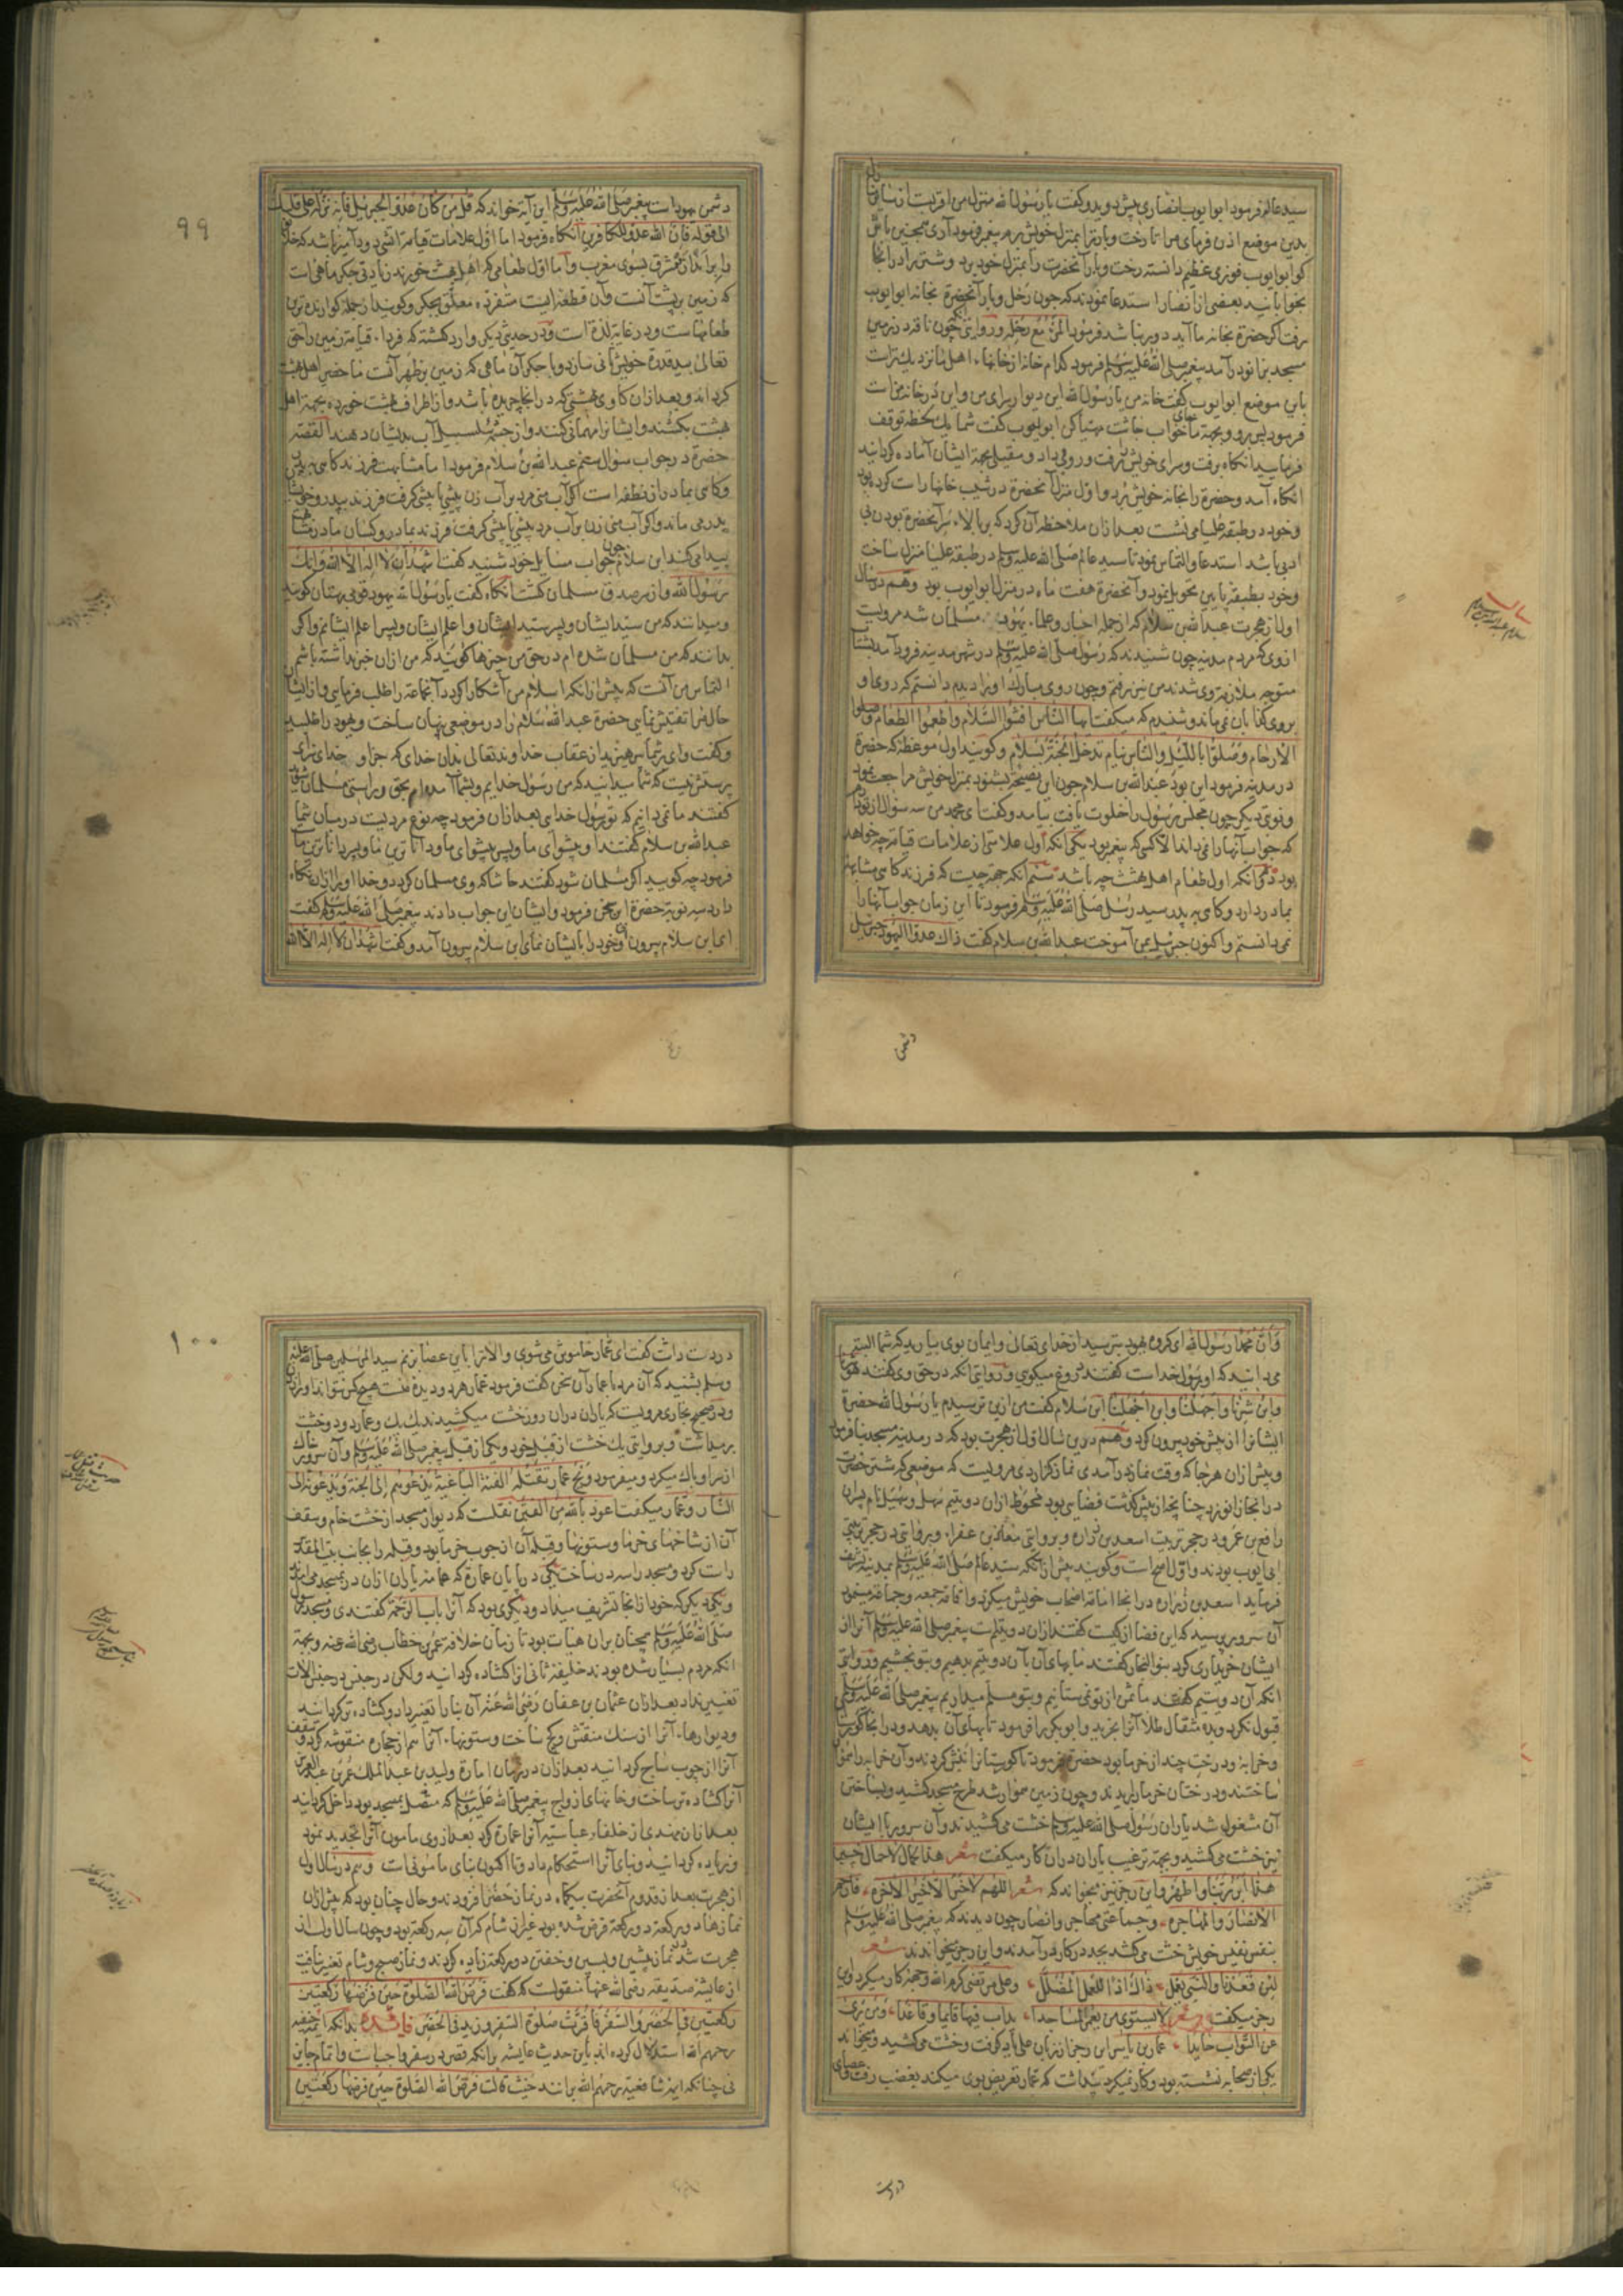 سید عالم فرمود ابو ایوب انصاری پیش دوید و گفت یا رسول الله منزل من اقربست
بدین موضع اذن فرمای مرا تا رخت و بار ترا بمنزل خویش برم پیغمبر فرمود آری
کو ابو ایوب فوزی عظیم دانسته رخت و بار آنحضرت را بمنزل خود برد و شتر را در آنجا
بخوابانید بعضی از انصار استدعا نمودند که چون رحل و بار آنحضرة بخانه ابو ایوب
رفت اکر حضرة بخانه ما آید دور نباشد فرمود المرء مع رحله و روایتی چون ناقه در زمین
مسجد زانو زد آمد پیغمبر صلی الله علیه وسلم فرمود کدام خانه از خانهاء اهل ما نزدیک تراست
باین موضع ابو ایوب کفت خانه من یا رسول الله این دیوار سرای من و این در خانه من است
فرمود پس برو و بجهة ما جای خواب خاشت مهیا کن ابو ایوب کفت شما یک لحظه توقف
فرمایید انکاه برفت و سرای خویش برفت و روفی داد و مقیلی بجهة ایشان آماده کردانید
انکاه آمد و حضرة را بخانه خویش برد و اول منزل آنحضرة در شیب خانها راست کرده بود
وخود در طبقه علیا می نشست بعد از ان ملاحظه آن کرد که بر بالاء سر آنحضرة بودن بی
ادبی باشد استدعا و التماس نمود تا سید عالم صلی الله علیه وسلم در طبقه علیا منزل ساخت
وخود بطبقه پایین تحویل نمود و آنحضرة هفت ماه در منزل ابو ایوب بود وهم در سال
اول از هجرت عبد الله بن سلام که از جمله احبار و علماء یهود بود مسلمان شد مرویست
ازوی که مردم مدینه چون شنیدند که رسول صلی الله علیه وسلم در شهر مدینه فرود آمد
متوجه ملازمة وی شدند من نیز برفتم و چون روی مبارک او را دیدم دانستم که روی او
بروی کذابان نمی ماند و شنیدم که میکفت ایها الناس افشوا السلام واطعموا الطعام وصلوا
الارحام وصلوا باللیل والناس نیام تدخلوا الجنة بسلام وکویند اول موعظه که حضرة
در مدینه فرمود این بود عبد الله بن سلام چون این نصیحة بشنود بمنزل خویش مراجعت نمود
ونوبتی دیکر چون مجلس رسول را خلوت یافت بیامد و کفت ای محمد من سه سؤال از تو دارم
که جواب آنها را نمی داند الا کسی که پیغمبر بود یکی آنکه اول علامتی از علامات قیامة چه خواهد
بود دکر آنکه اول طعام اهل بهشت چه باشد سیم آنکه جهة چیست که فرزند کاهی مشابهت
بمادر دارد و کاهی به پدر سید رسل صلی الله علیه وسلم فرمود تا این زمان جواب آنها را
نمی دانستم و اکنون جبرئیل بمن آموخت عبد الله بن سلام کفت ذاک عدو الیهود جبرئیل
دشمن
۹۹
دشمن یهود است پیغمبر صلی الله علیه وسلم این آیه خواند که قل من کان عدوا لجبریل فانه نزله علی قلبک
الی قوله فان الله عدو للکافرین آنکاه فرمود اما اول علامات قیامة آتشی دود آمیز باشد که خلق
را براند از مشرق بسوی مغرب و اما اول طعامی که اهل بهشت خورند زیادتی جکر ماهی است
که زمین بر پشت آنست و آن قطعه ایست متفرده معلق بجکر وکویند از جمله کوارنده ترین
طعامهاست و در غایة لذة است و در حدیثی دیکر وارد کشته که فرداء قیامة زمین را حق
تعالی بید قدرة خویش نانی سازد و با جکر آن ماهی که زمین بر ظهر آنست ما حضر اهل بهشت
کرداند و بعد از ان کاوی بهشتی که در انجا چریده باشد و از اطراف بهشت خورده بجهة اهل
بهشت بکشند و ایشانرا مهمانی کنند و از چشمه سلسبیل آب بدیشان دهند القصه
حضرة در جواب سؤال سیم عبد الله بن سلام فرمود اما مشابهت فرزند کاهی به پدر
وکاهی بمادر از نطفه است اکر آب منی مرد بر آب زن پیشی کرفت فرزند بپدر و خویشان
پدر می ماند و اکر آب منی زن بر آب مرد پیشی کرفت فرزند بمادر وکسان مادر مشابهت
پیدا می کند ابن سلام چون جواب مسایل خود شنید کفت اشهد ان لا اله الا الله وانک
رسول الله و از سر صدق مسلمان کشت آنکاه کفت یا رسول الله یهود قومی بهتان کویند
ومیدانند که من سید ایشان و پسر سید ایشان و اعلم ایشان و پسر اعلم ایشانم و اکر
بدانند که من مسلمان شده ام در حق من چیزها کویند که من از ان خبر نداشته باشم
التماس من آنست که پیش از آنکه اسلام من آشکارا کردد آنجماعة را طلب فرمایی و از ایشان
حال مرا تفتیش نمایی حضرة عبد الله سلام را در موضعی پنهان ساخت و یهود را طلبید
وکفت وای بر شما بترسید از عقاب خداوند تعالی بدان خدای که جز او خدای سزای
پرستش نیست که شما میدانید که من رسول خدایم و بشما آمده ام بحق و راستی مسلمان شوید
کفتند ما نمی دانیم که تو رسول خدای بعد از ان فرمود چه نوع مردیست در میان شما
عبد الله بن سلام کفتند او پیشوای ما و پسر پیشوای ما و دانا ترین ما و پسر دانا ترین ما
فرمود چه کویید اکر مسلمان شود کفتند حاشا که وی مسلمان کردد و خدا او را از ان نکاه
دارد سه نوبة حضرة این سخن فرمود و ایشان این جواب دادند پیغمبر صلی الله علیه وسلم کفت
ای ابن سلام بیرون آی و خود را بایشان نمای ابن سلام بیرون آمد و کفت اشهد ان لا اله الا الله
وان محمدا رسول الله ای کروه یهود بترسید از خدای تعالی و ایمان بوی بیارید که شما البته
می دانید که او رسول خداست کفتند دروغ میکویی و روایتی آنکه در حق وی کفتند هو
وابن شرنا واجهلنا وابن اجهلنا ابن سلام کفت من ازین می ترسیدم یا رسول الله حضرة
ایشانرا از پیش خود بیرون کرد وهم درین سال اول از هجرت بود که در مدینه مسجد بنا فرمود
وپیش از ان هر جا که وقت نماز در آمدی نماز کزاردی مرویست که موضعی که شتر حضرت
در انجا زانو زد چنانچه از پیش کذشت فضایی بود محوط از ان دو یتیم سهل و سهیل نام پسران
رافع بن عمرو در حجر تربیت اسعد بن زراره و بروایتی معاذ بن عفراء و بروایتی در حجر تربیت
ابی ایوب بودند و اول اصح است وکویند پیش از آنکه سید عالم صلی الله علیه وسلم بمدینه تشریف
فرماید اسعد بن زراره در انجا امامة اصحاب خویش میکرد و اقامة جمعه و جماعة مینمود
آن سرور پرسید که این فضا از کیست کفتند از ان دو یتیم است پیغمبر صلی الله علیه وسلم آنرا از
ایشان خریداری کرد بنو النجار کفتند ما بهای آن بآن دو یتیم بدهیم و بتو بخشیم و روایتی
آنکه آن دو یتیم کفتند ما ثمن از تو نمی ستانیم و بتو مسلم میداریم پیغمبر صلی الله علیه وسلم
قبول نکرد و بده مثقال طلا آنرا بخرید و ابو بکر را فرمود تا بهای آن بدهد و در انجا کورستان
وخرابه و درخت چند از خرما بود حضرة فرمود تا کورستانرا نبش کردند و آن خرابه را هموار
ساختند و درختان خرما ببریدند و چون زمین هموار شد طرح مسجد کشید و بساختن
آن مشغول شد یاران رسول صلی الله علیه وسلم خشت می کشیدند و آن سرور با ایشان
نیز خشت می کشید و بجهة ترغیب یاران در ان کار میکفت شعر هذا الحمال لا حمال خیبر
هذا ابر ربنا واطهر و این رجز نیز میخواند که شعر اللهم لا خیر الا خیر الاخره فارحم
الانصار والمهاجره وجماعتی مهاجر و انصار چون دیدند که پیغمبر صلی الله علیه وسلم
بنفس نفیس خویش خشت می کشد بجد در کار در آمدند و این رجز میخواندند شعر
لئن قعدنا والنبی یعمل ذاک اذا للعمل المضلل وعلی مرتضی کرم الله وجهه کار میکرد و این
رجز میکفت شعر لا یستوی من یعمر المساجدا یداب فیها قایما وقاعدا ومن یری
عن التراب حایدا عمار بن یاسر این رجز از زبان علی یاد کرفت و خشت می کشید و میخواند
یکی از صحابه نشسته بود و کار نمیکرد پنداشت که عمار تعریض بوی میکند بغضب رفت و عصای
در دست
۱۰۰
در دست داشت کفت ای عمار خاموش می شوی و الا ترا باین عصا بزنم سید المرسلین صلی الله علیه
وسلم بشنید که آن مرد با عمار آن سخن کفت فرمود عمار هر دو دیده منست هیچ کس نتواند او را
ودر صحیح بخاری مرویست که یاران در ان روز خشت میکشیدند یک یک و عمار دو دو خشت
برمیداشت و بروایتی یک خشت از قبل خود و یکی از قبل پیغمبر صلی الله علیه وسلم و آن سرور خاک
از سر او پاک میکرد و میفرمود ویح عمار تقتله الفئة الباغیة یدعوهم الی الجنة ویدعونه الی
النار و عمار میکفت اعوذ بالله من الفتن نقلست که دیوار مسجد از خشت خام و سقف
آن از شاخهای خرما و ستونها و قبله آن از چوب خرما بود و قبله را بجانب بیت المقدس
راست کرد و مسجد را سه در ساخت یکی در پایان عمارة که عامه یاران از ان در بمسجد می آمدند
ویکی دیکر که خود از انجا تشریف میداد و دیکری بود که آنرا باب الرحمة کفتندی و مسجد رسول
صلی الله علیه وسلم همچنان بر ان هیات بود تا زمان خلافة عمر بن خطاب رضی الله عنه و بجهة
آنکه مردم بسیار شده بودند خلیفه ثانی آنرا کشاده کردانید ولکن در جنس و در جنس آلات
تغییر نداد بعد از ان عثمان بن عفان رضی الله عنه آن بنا را تغییر داد و کشاده تر کردانید
ودیوارهاء آنرا از سنک منقش و کچ ساخت و ستونهاء آنرا هم از حجاره منقوشه کرد و سقف
آنرا از چوب ساج کردانید بعد از ان در زمان امارة ولید بن عبد الملک عمر بن عبد العزیز
آنرا کشاده تر ساخت و خانهای ازواج پیغمبر صلی الله علیه وسلم که متصل بمسجد بود داخل کردانید
بعد از ان مهدی از خلفاء عباسیه آنرا عمارة کرد بعد از وی مامون آنرا تجدید نمود
وزیاده کردانید و بنای آنرا استحکام داد و تا اکنون بنای مامونی است وهم در سال اول
از هجرت بعد از قدوم آنحضرت بیکماه در نماز حضر افزودند و حال چنان بود که پیش از ان
نمازها دو رکعة دو رکعة فرض شده بود غیر از نماز شام که آن سه رکعة بود و چون سال اول از
هجرت شد در نماز پیشین و پسین و خفتن دو رکعة زیاده کردند و نماز صبح و شام تغییر نیافت
از عایشه صدیقه رضی الله عنها منقولست که کفت فرض الله الصلوة حین فرضها رکعتین
رکعتین فی الحضر والسفر فاقرت صلوة السفر وزید فی الحضر فایده بدانکه ائمه حنفیه
رحمهم الله استدلال کرده اند باین حدیث عایشه بر آنکه قصر در سفر واجب است و اتمام جایز
نی چنانکه ایمه شافعیه رحمهم الله برانند حیث قالت فرض الله الصلوة حین فرضها رکعتین